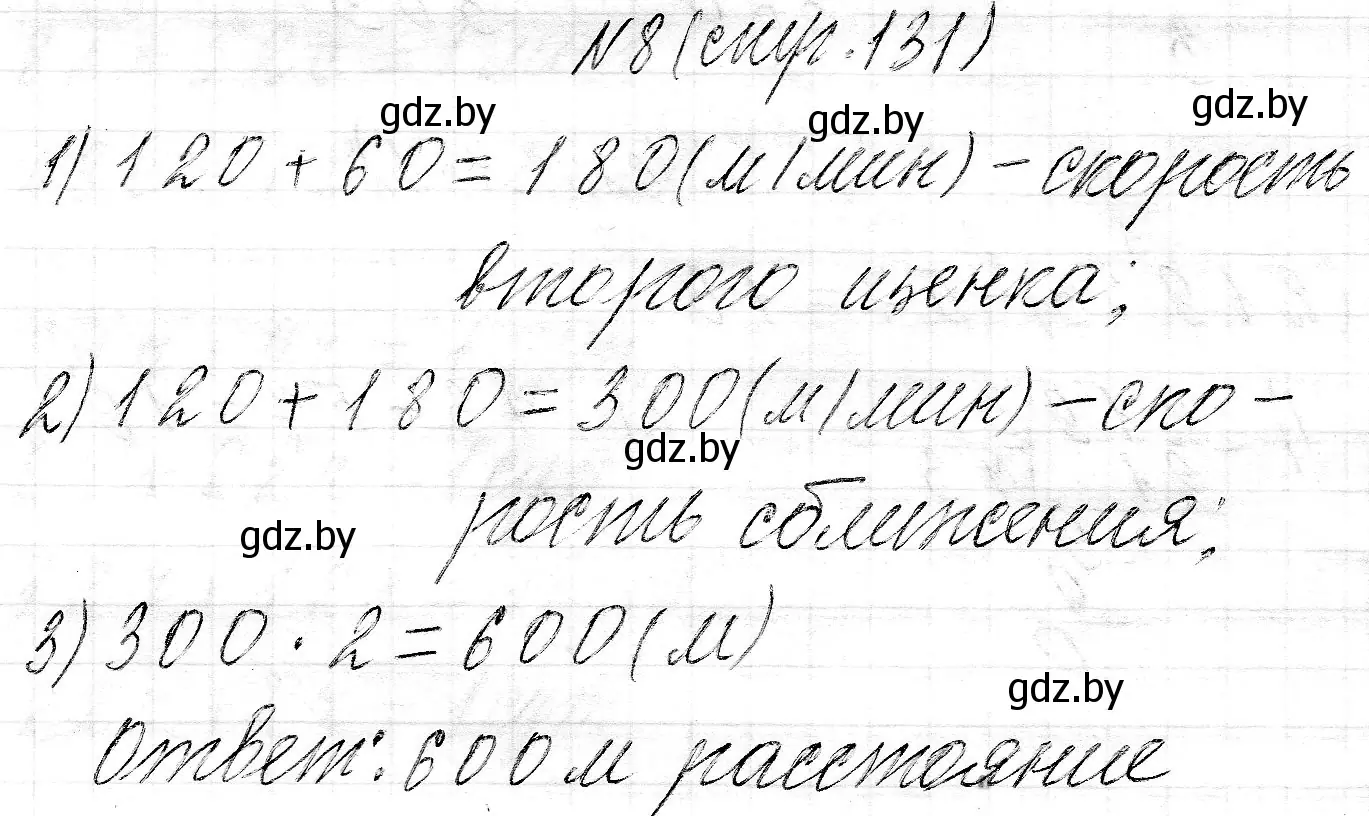 №8 (стр. 131)
gdz.by gdz.by gdz.by
1) 120 + 60 = 180 (м/мин) - скорость
второго щенка;
2) 120 + 180 = 300 (м/мин) - ско-
gdz.by
рость сближения;
gdz.by
3) 300 · 2 = 600 (м)
gdz.by
Ответ: 600 м расстояние